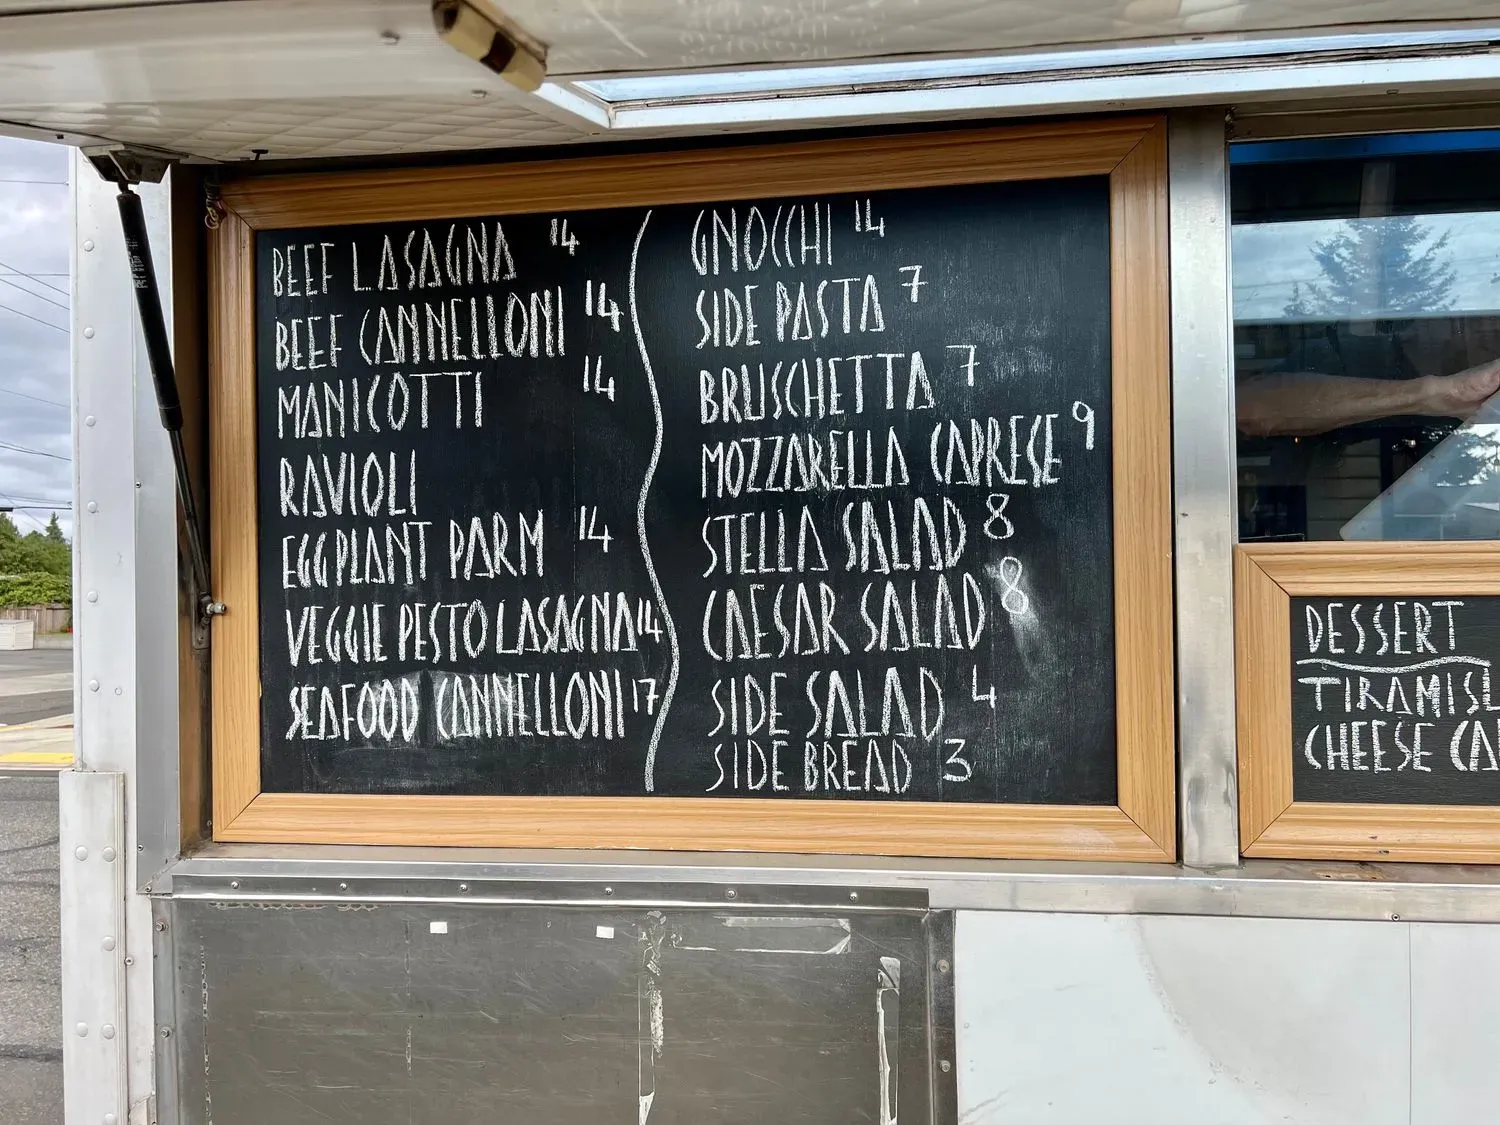 BEEF LASAGNA 14
BEEF CANNELLONI 14
MANICOTTI 14
RAVIOLI
EGGPLANT PARM 14
VEGGIE PESTO LASAGNA 14
SEAFOOD CANNELLONI 17
GNOCCHI 14
SIDE PASTA 7
BRUSCHETTA 7
MOZZARELLA CAPRESE 9
STELLA SALAD 8
CAESAR SALAD 8
SIDE SALAD 4
SIDE BREAD 3
DESSERT
TIRAMISU
CHEESE CA